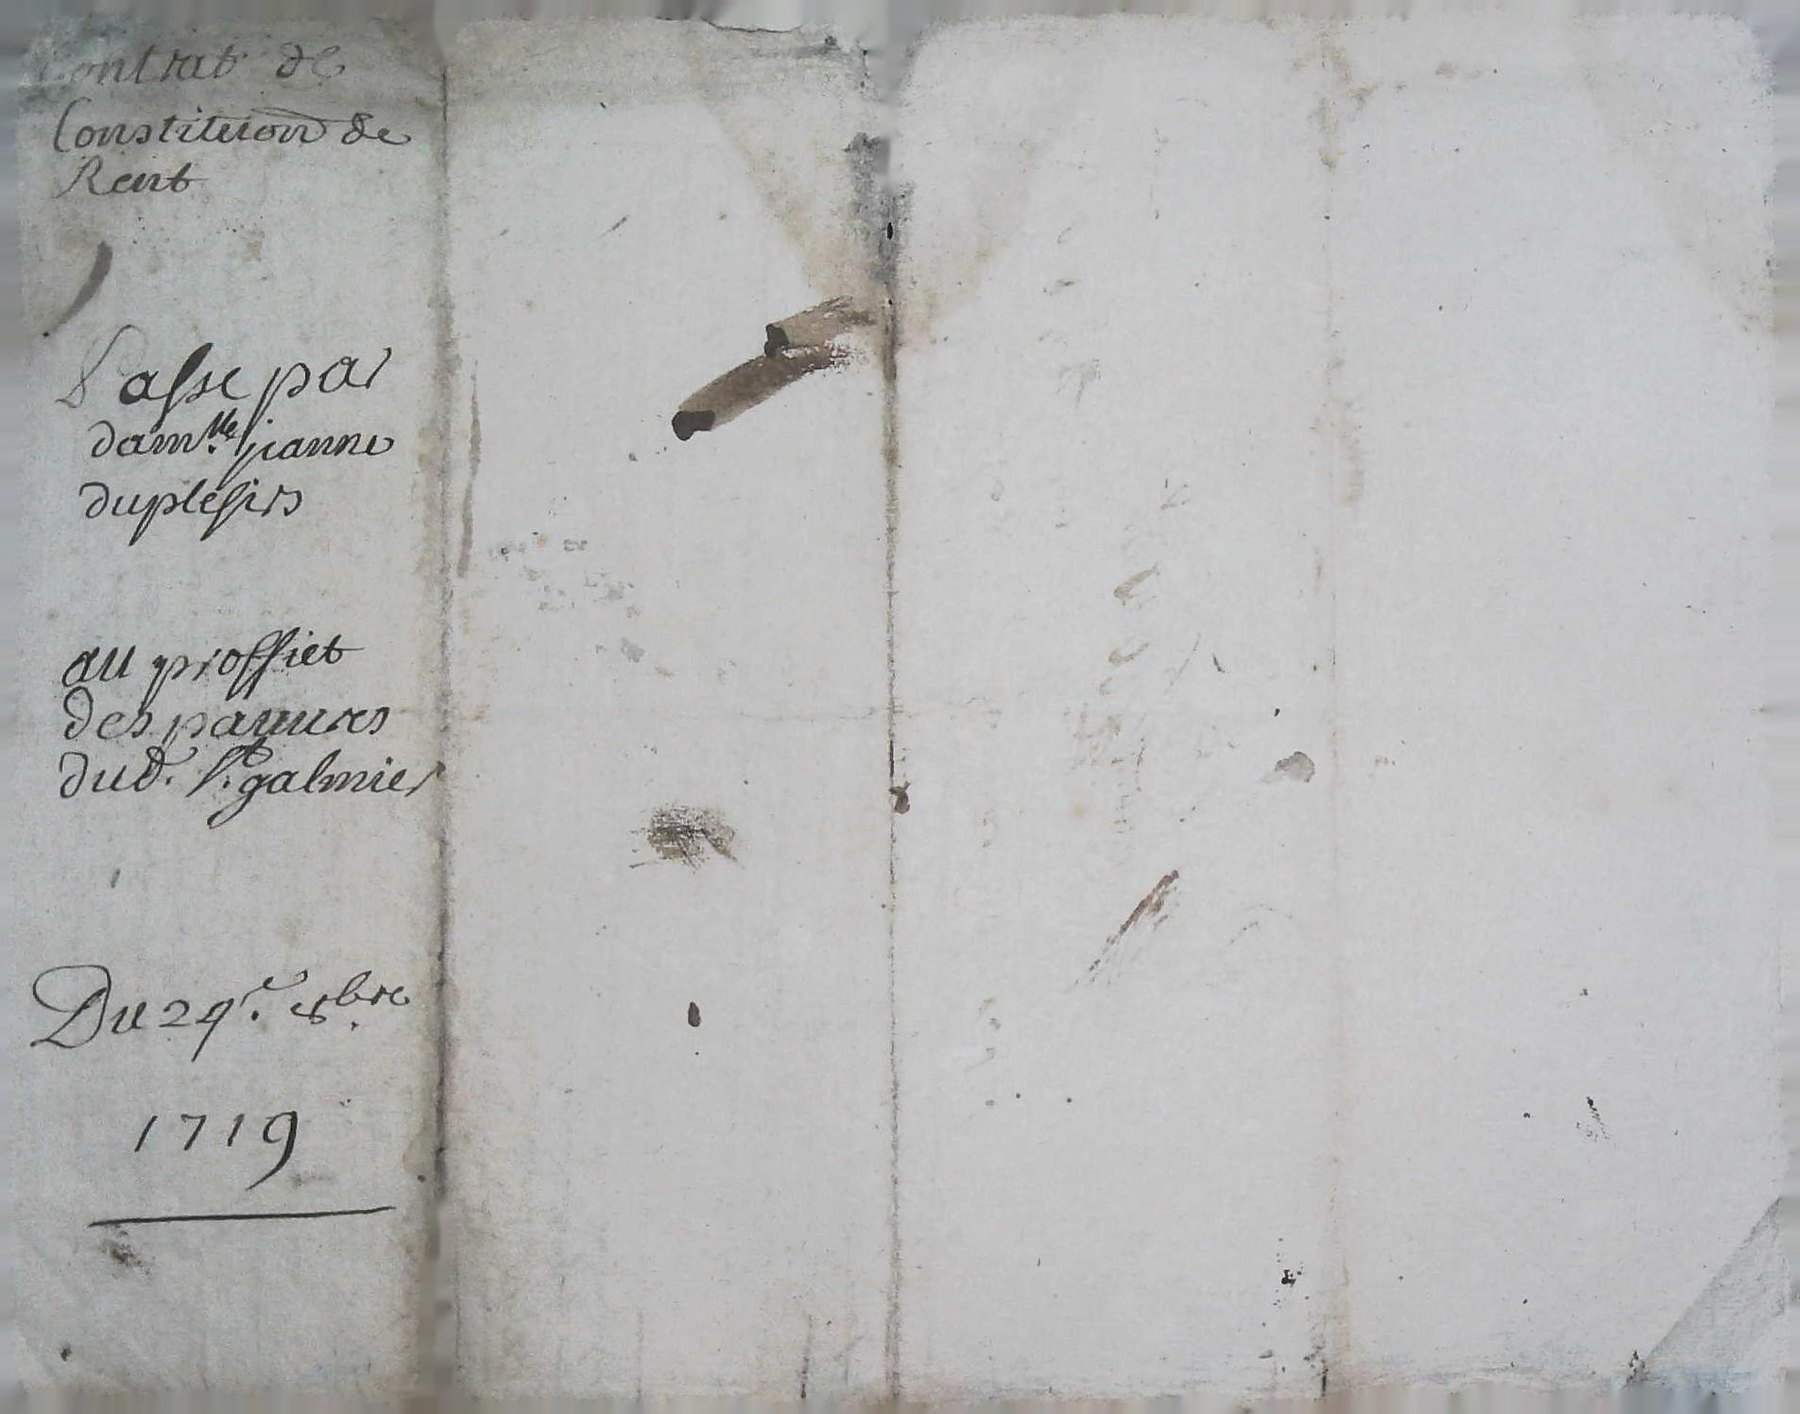 Contrat de
Constitution de
Rent
Passe par
dam.lle jeanne
duplesis
au proffiet
des pauures
dud. St. galmier
Du 29e. 8bre.
1719